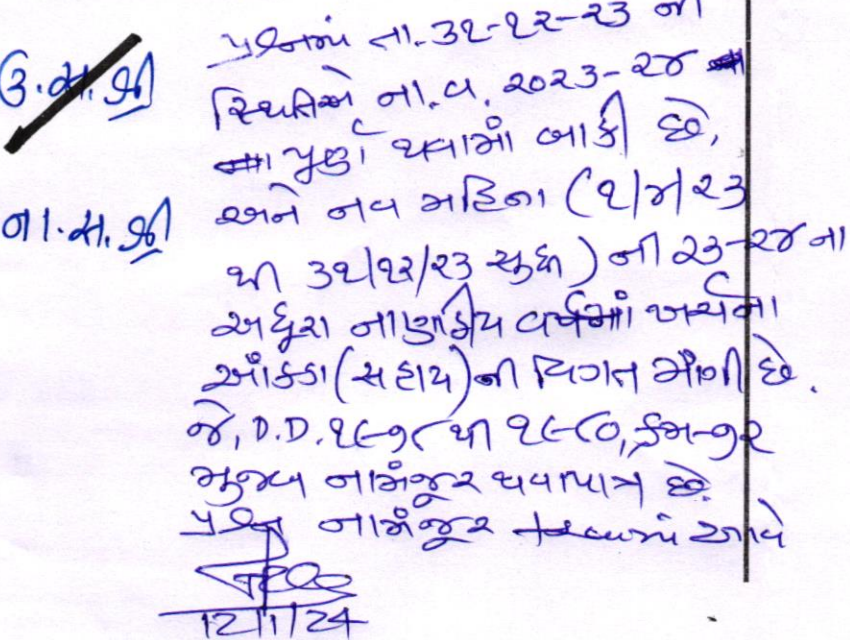 પ્રશ્નમાં તા. ૩૧-૧૨-૨૩ ની
ઉ.સ.શ્રી
સ્થિતિએ ના.વ. ૨૦૨૩-૨૪
પૂર્ણ થવામાં બાકી છે,
ના.સ.શ્રી
અને નવ મહિના (૧/૪/૨૩
થી ૩૧/૧૨/૨૩ સુધી) ની ૨૩-૨૪ ના
અધૂરા નાણાકીય વર્ષમાં ખર્ચના
આંકડા (સહાય) ની વિગત માંગી છે.
જે, D.D. ૧૯૭૮ થી ૧૯૮૦, ક્રમ-૭૨
મુજબ નામંજૂર થવાપાત્ર છે.
પ્રશ્ન નામંજૂર કરવામાં આવે
12/1/24